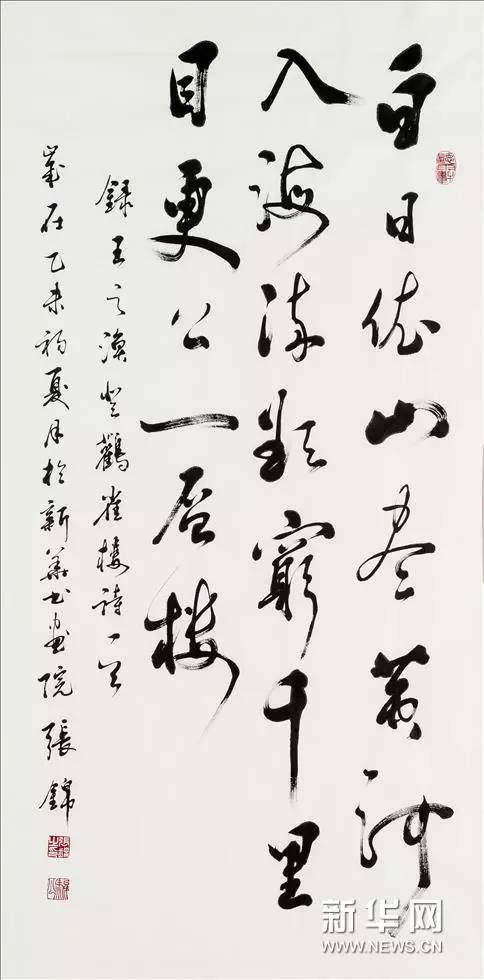 白日依山尽黄河
入海流欲窮千里
目更上一层楼
録王之渙登鸛雀楼詩一首
歲在乙未初夏月於新華书画院 張錦
新华网
WWW.NEWS.CN